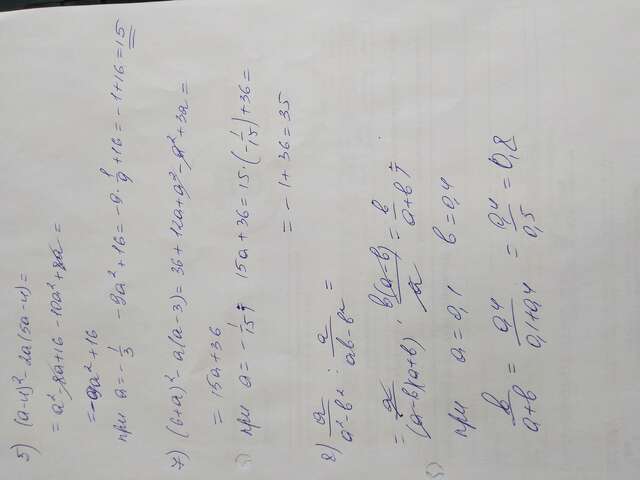 5) (a-4)² - 2a(5a-4) =
= a² - 8a + 16 - 10a² + 8a =
= -9a² + 16
при a = -1/3   -9a² + 16 = -9 · 1/9 + 16 = -1 + 16 = 15
7) (6+a)² - a(a-3) = 36 + 12a + a² - a² + 3a =
= 15a + 36
при a = -1/15;   15a + 36 = 15 · (-1/15) + 36 =
= -1 + 36 = 35
8) a/(a²-b²) : a/(ab-b²) =
= a/((a-b)(a+b)) · b(a-b)/a = b/(a+b);
при   a = 0,1   b = 0,4
b/(a+b) = 0,4/(0,1+0,4) = 0,4/0,5 = 0,8